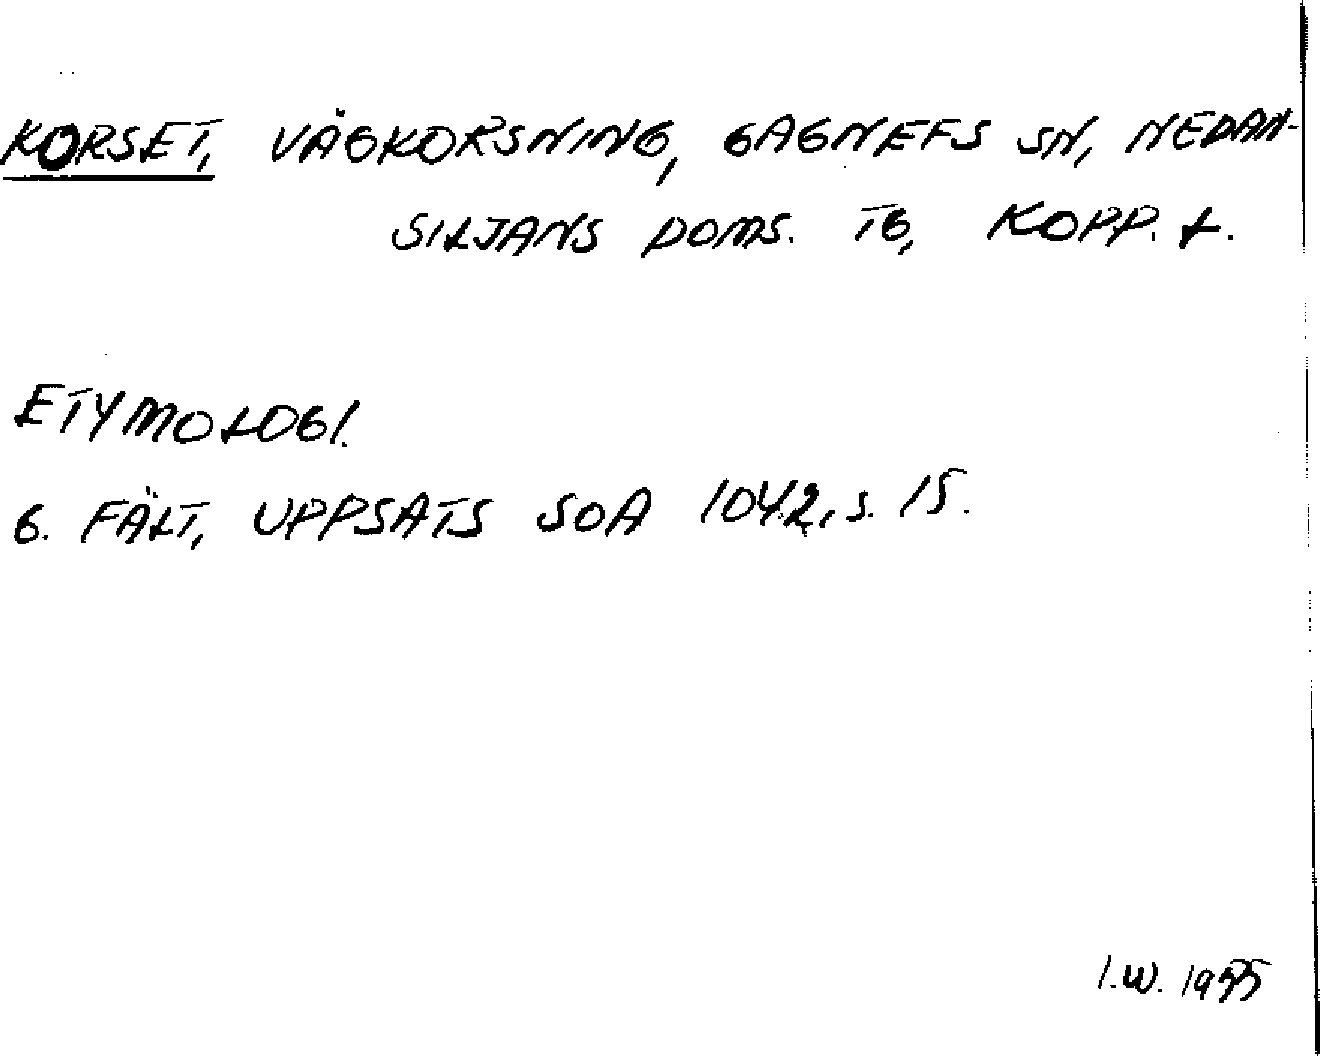 KORSET, VÄGKORSNING, GAGNEFS SN, NEDAN-
SILJANS DOMS. TG, KOPP. L.
ETYMOLOGI.
G. FÄLT, UPPSATS SOA 1042, S. 15.
I.W. 1955